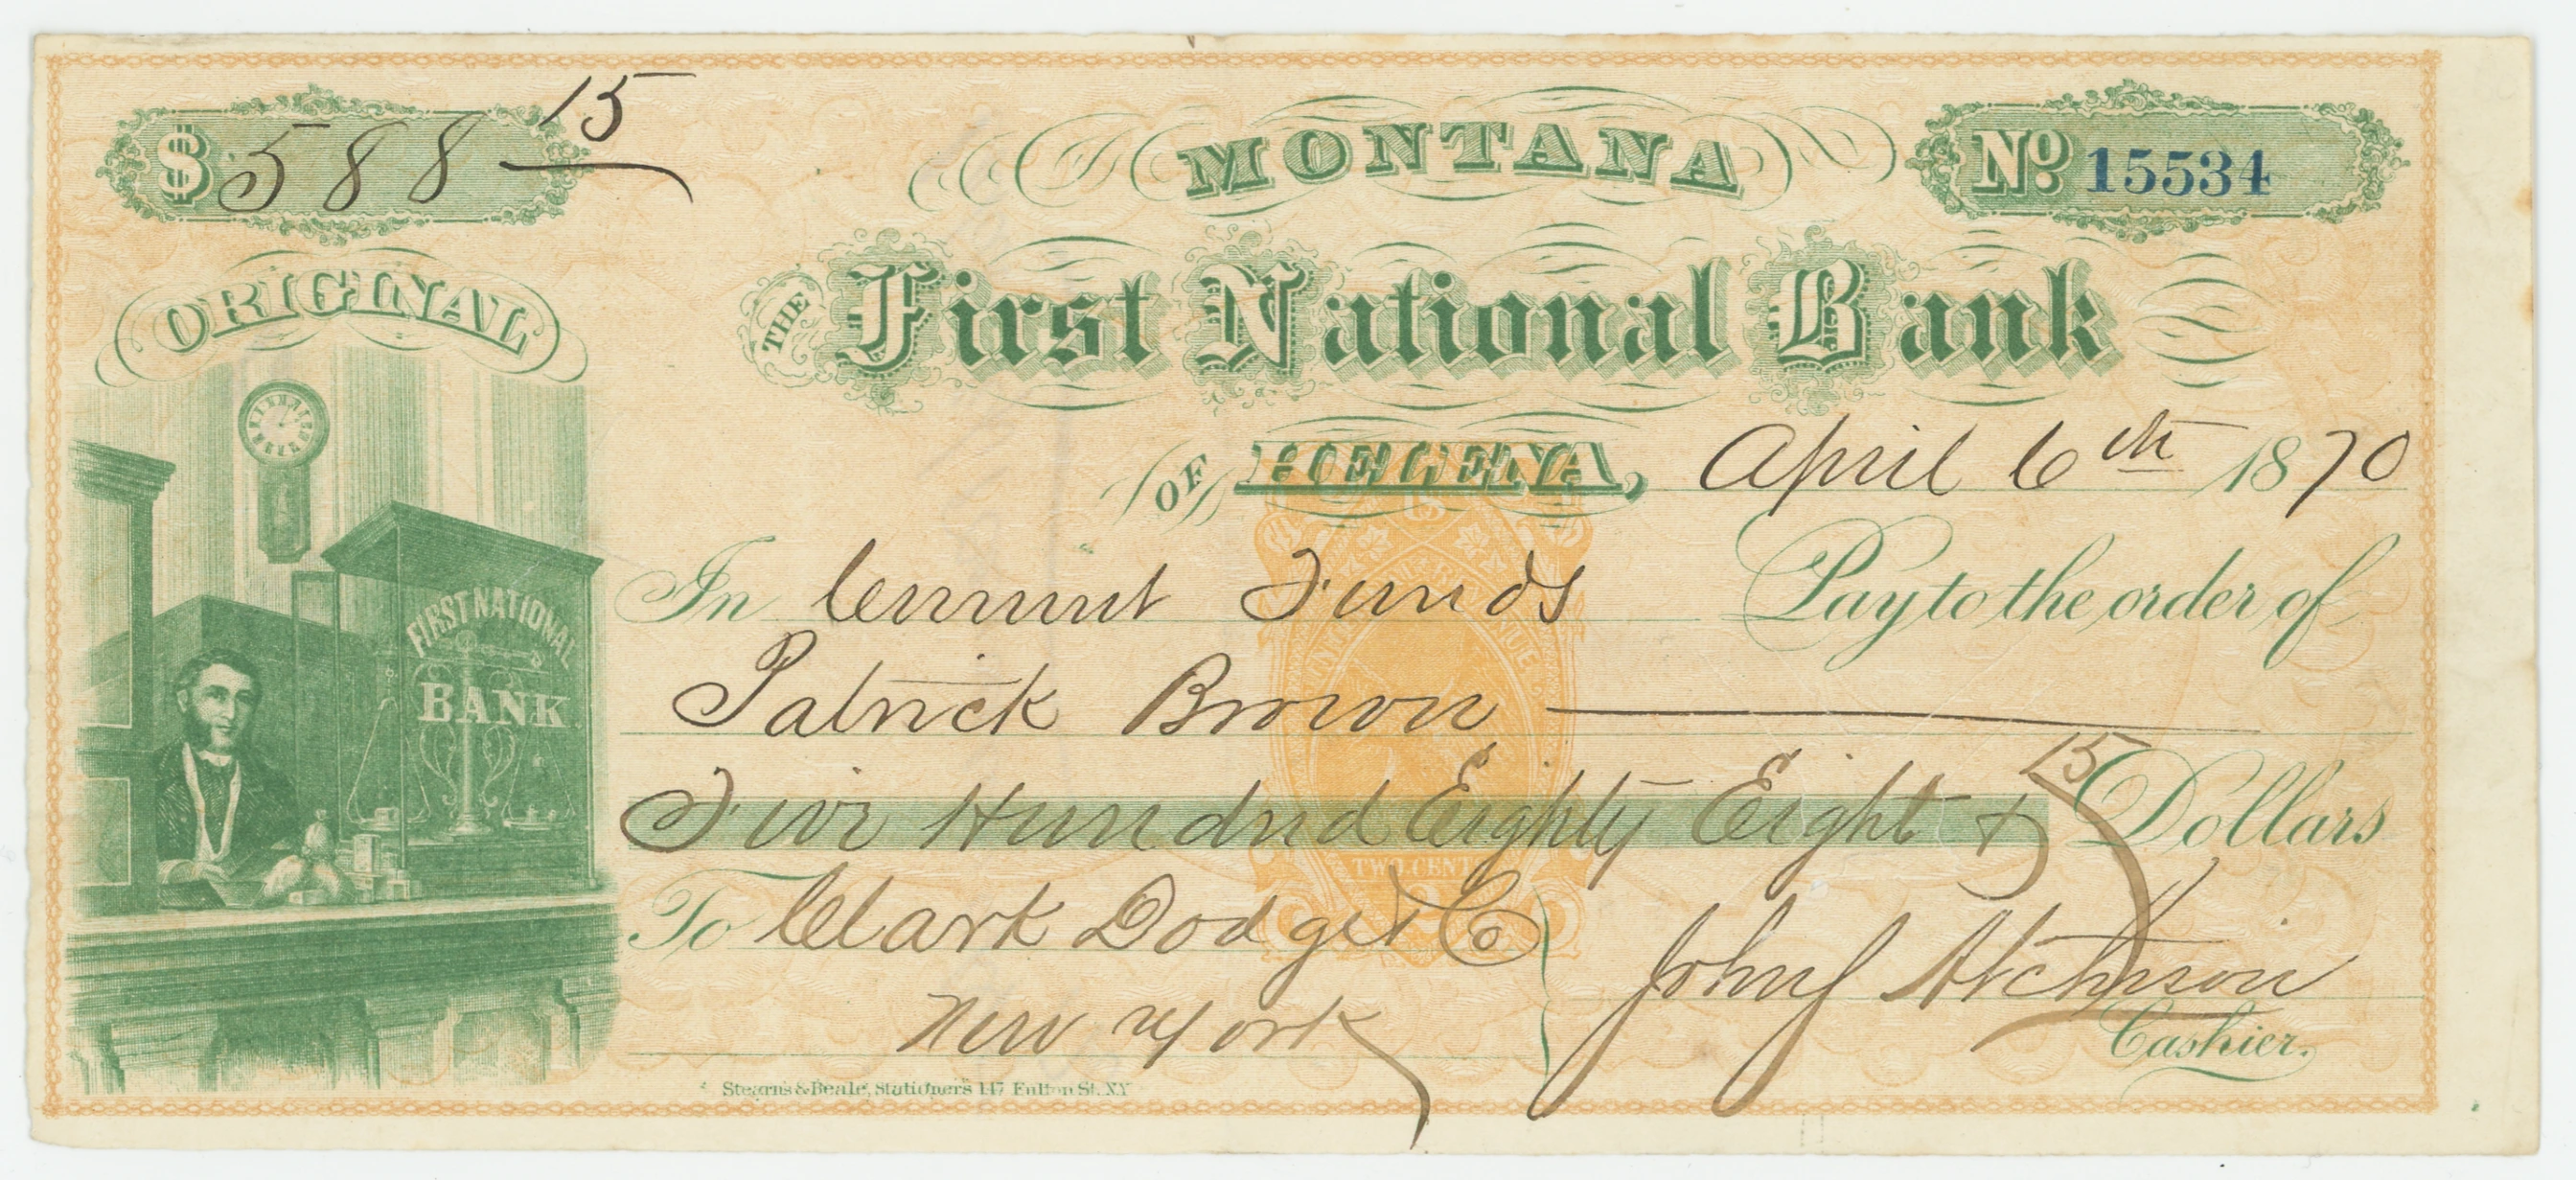 $ 588 15
MONTANA
No 15534
ORIGINAL
THE First National Bank
OF HELENA, April 6th 1870
In Current Funds Pay to the order of
Patrick Brown
Five Hundred Eighty Eight & 15 Dollars
To Clark Dodge & Co
New York
John J Atchison
Cashier.
FIRST NATIONAL
BANK
TWO CENTS
Stearns & Beale, Stationers 147 Fulton St. N.Y.